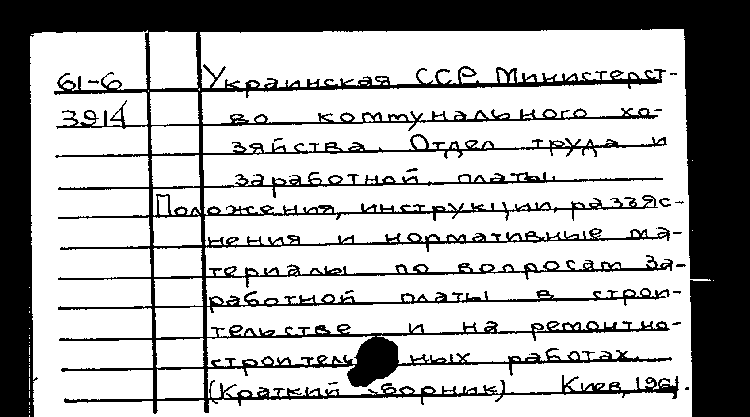 61-6 Украинская ССР. Министерст-
3914 во коммунального хо-
зяйства. Отдел труда и
заработной платы.
Положения, инструкции, разъяс-
нения и нормативные ма-
териалы по вопросам за-
работной платы в строи-
тельстве и на ремонтно-
строительных работах.
(Краткий сборник) Киев, 1961.